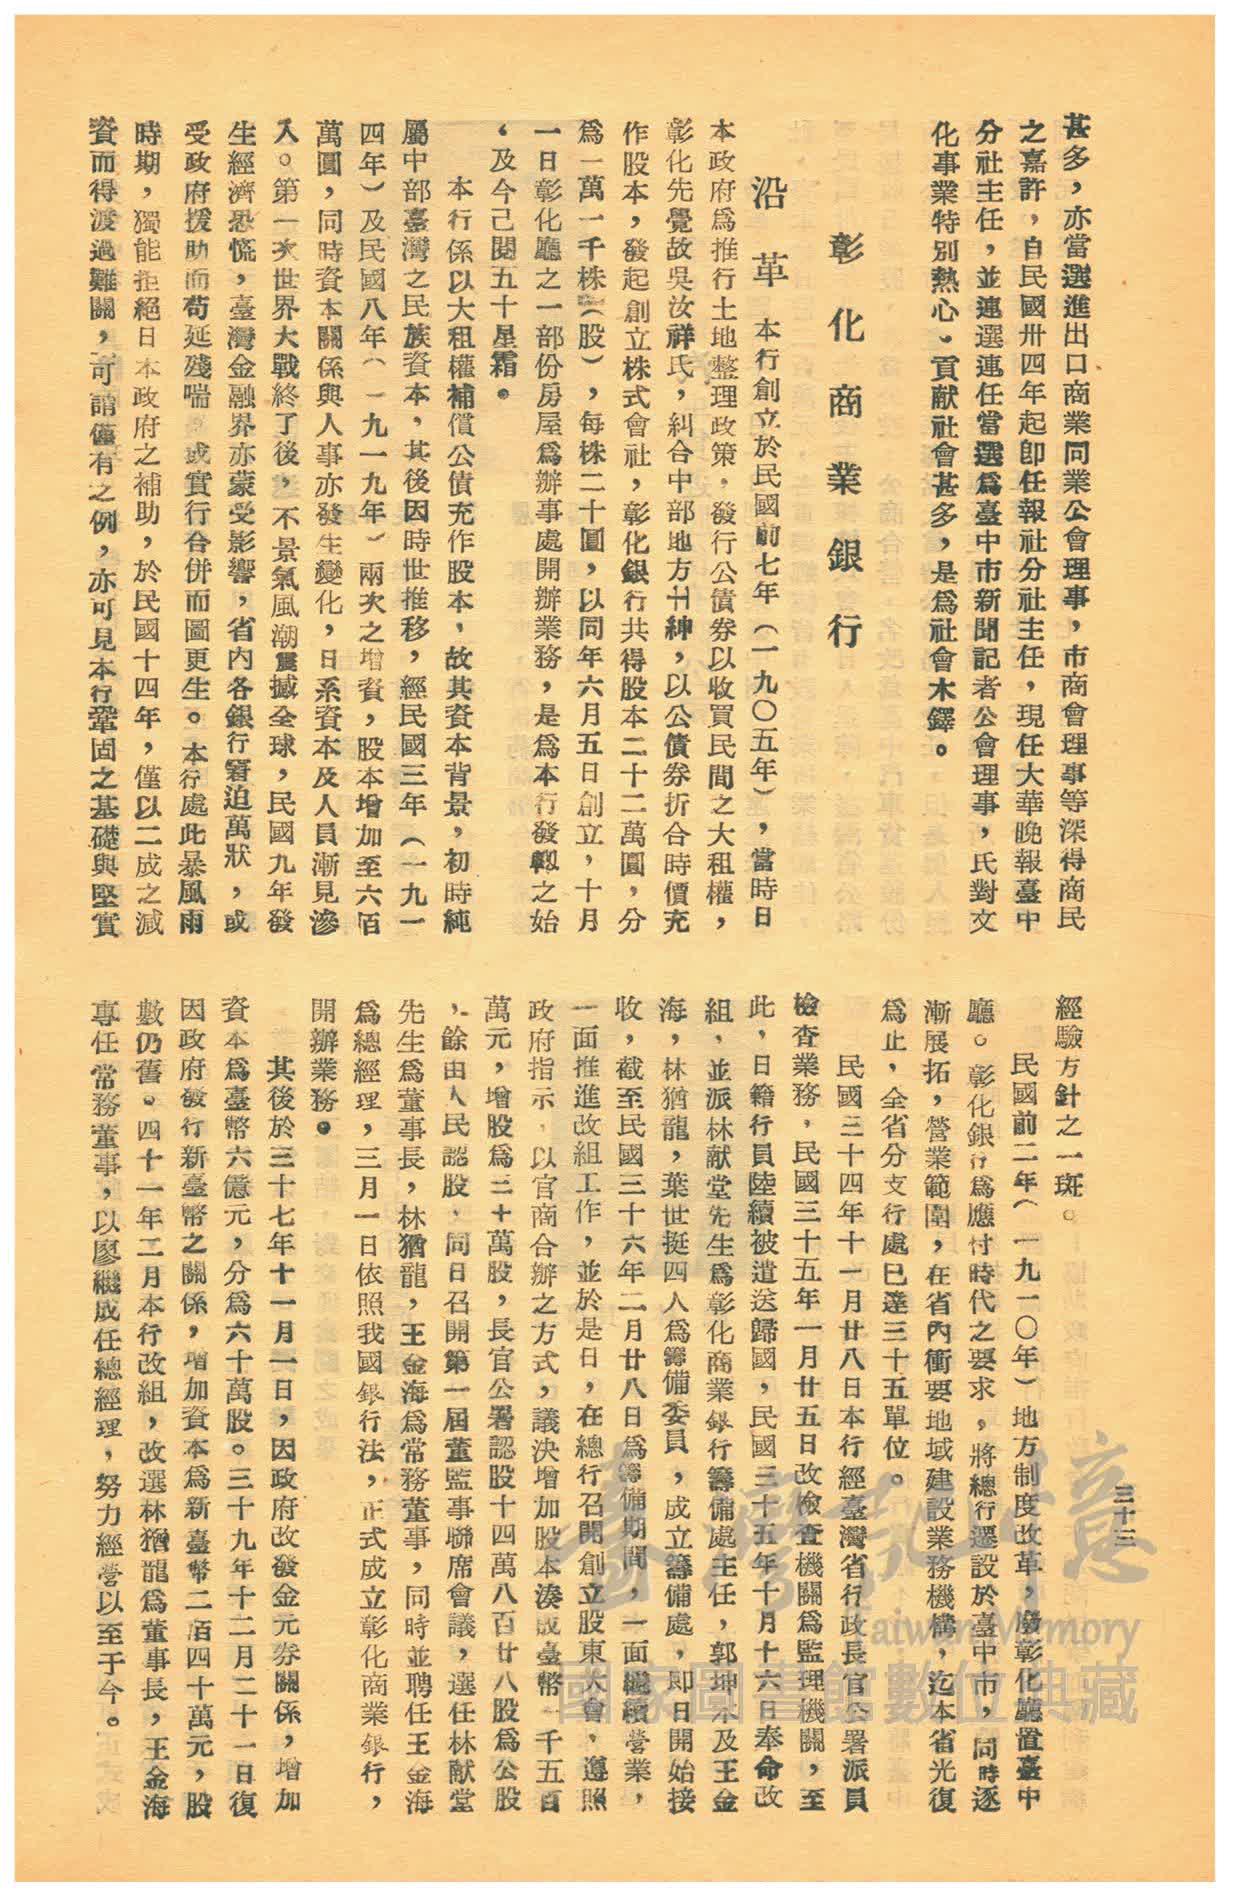 甚多，亦當選進出口商業同業公會理事，市商會理事等深得商民
之嘉許，自民國卅四年起卽任報社分社主任，現任大華晚報臺中
分社主任，並連選連任當選爲臺中市新聞記者公會理事，氏對文
化事業特別熱心，貢献社會甚多，是爲社會木鐸。
彰化商業銀行
沿革　本行創立於民國前七年（一九〇五年），當時日
本政府爲推行土地整理政策，發行公債券以收買民間之大租權，
彰化先覺故吳汝祥氏，糾合中部地方紳，以公債券折合時價充
作股本，發起創立株式會社，彰化銀行共得股本二十二萬圓，分
爲一萬一千株（股），每株二十圓，以同年六月五日創立，十月
一日彰化廳之一部份房屋爲辦事處開辦業務，是爲本行發軔之始
，及今己閱五十星霜。
本行係以大租權補償公債充作股本，故其資本背景，初時純
屬中部臺灣之民族資本，其後因時世推移，經民國三年（一九一
四年）及民國八年（一九一九年）兩次之增資，股本增加至六佰
萬圓，同時資本關係與人事亦發生變化，日系資本及人員漸見滲
入。第一次世界大戰終了後，不景氣風潮震撼全球，民國九年發
生經濟恐慌，臺灣金融界亦蒙受影響，省內各銀行窘迫萬狀，或
受政府援助而苟延殘喘，或實行合併而圖更生。本行處此暴風雨
時期，獨能拒絕日本政府之補助，於民國十四年，僅以二成之減
資而得渡過難關，可謂僅有之例，亦可見本行鞏固之基礎與堅實
經驗方針之一斑。
民國前二年（一九一〇年）地方制度改革，廢彰化廳置臺中
廳。彰化銀行爲應付時代之要求，將總行遷設於臺中市，同時逐
漸展拓，營業範圍，在省內衝要地域建設業務機構，迄本省光復
爲止，全省分支行處已達三十五單位。
民國三十四年十一月廿八日本行經臺灣省行政長官公署派員
檢查業務，民國三十五年一月廿五日改檢查機關爲監理機關，至
此，日籍行員陸續被遣送歸國，民國三十五年十月十六日奉命改
組，並派林献堂先生爲彰化商業銀行籌備處主任，郭坤木及王金
海，林猶龍，葉世挺四人爲籌備委員，成立籌備處，卽日開始接
收，截至民國三十六年二月廿八日爲籌備期間，一面繼續營業，
一面推進改組工作，並於是日，在總行召開創立股東大會，遵照
政府指示，以官商合辦之方式，議決增加股本湊成臺幣一千五百
萬元，增股爲三十萬股，長官公署認股十四萬八百廿八股爲公股
，餘由人民認股，同日召開第一屆董監事聯席會議，選任林献堂
先生爲董事長，林猶龍，王金海爲常務董事，同時並聘任王金海
爲總經理，三月一日依照我國銀行法，正式成立彰化商業銀行，
開辦業務。
其後於三十七年十一月一日，因政府改發金元券關係，增加
資本爲臺幣六億元，分爲六十萬股。三十九年十二月二十一日復
因政府發行新臺幣之關係，增加資本爲新臺幣二佰四十萬元，股
數仍舊。四十一年二月本行改組，改選林猶龍爲董事長，王金海
專任常務董事，以廖繼成任總經理，努力經營以至于今。
三十三
臺灣記憶
Taiwan Memory
國家圖書館數位典藏